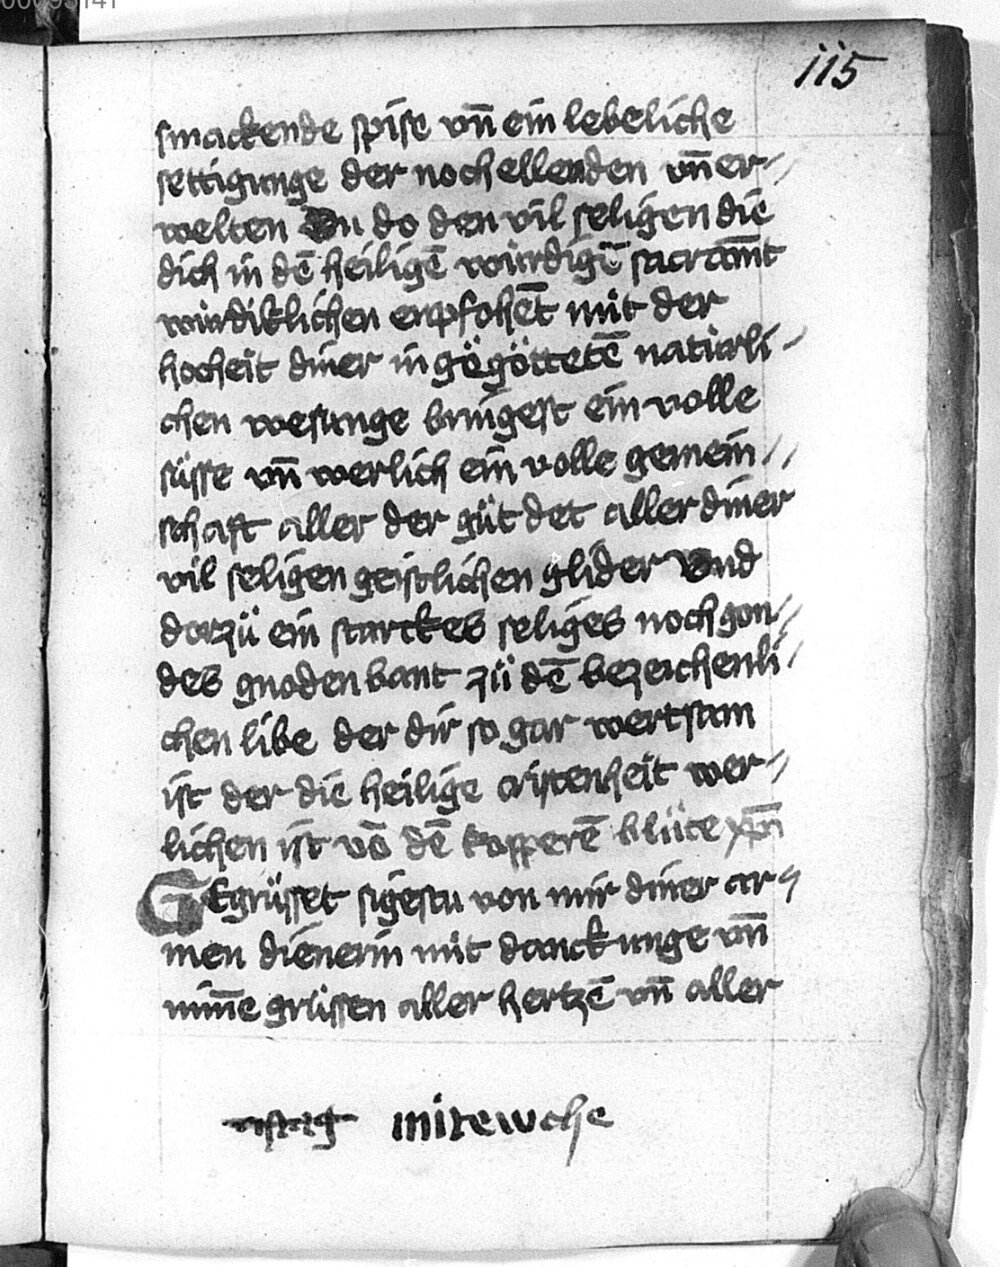 115
smackende spise vn̄ ein lebeliche
settigunge der noch ellenden vn̄ er⸗
welten Du do den vil seligen die
dich in dē heiligē wirdigē sacramēt
wirdiklichen enpfohēt mit der
hocheit diner ingögöttetē naturli⸗
chen wesunge bringest ein volle
süsse vn̄ werlich ein volle gemein⸗
schaft aller der güt det aller diner
vil seligen geistlichen glider Vnd
dorzü ein starckes seliges nochgon⸗
des gnoden bant zü dē bezeichenli⸗
chen libe der dir so gar wertsam
ist der die heilige cristenheit wer⸗
lichen ist vō dē kopperē blüte xp̄i
GEgrüsset sigestu von mir diner ar⸗
men dienerin mit danckunge vn̄
minē grüssen aller hertzē vn̄ aller
mitewche